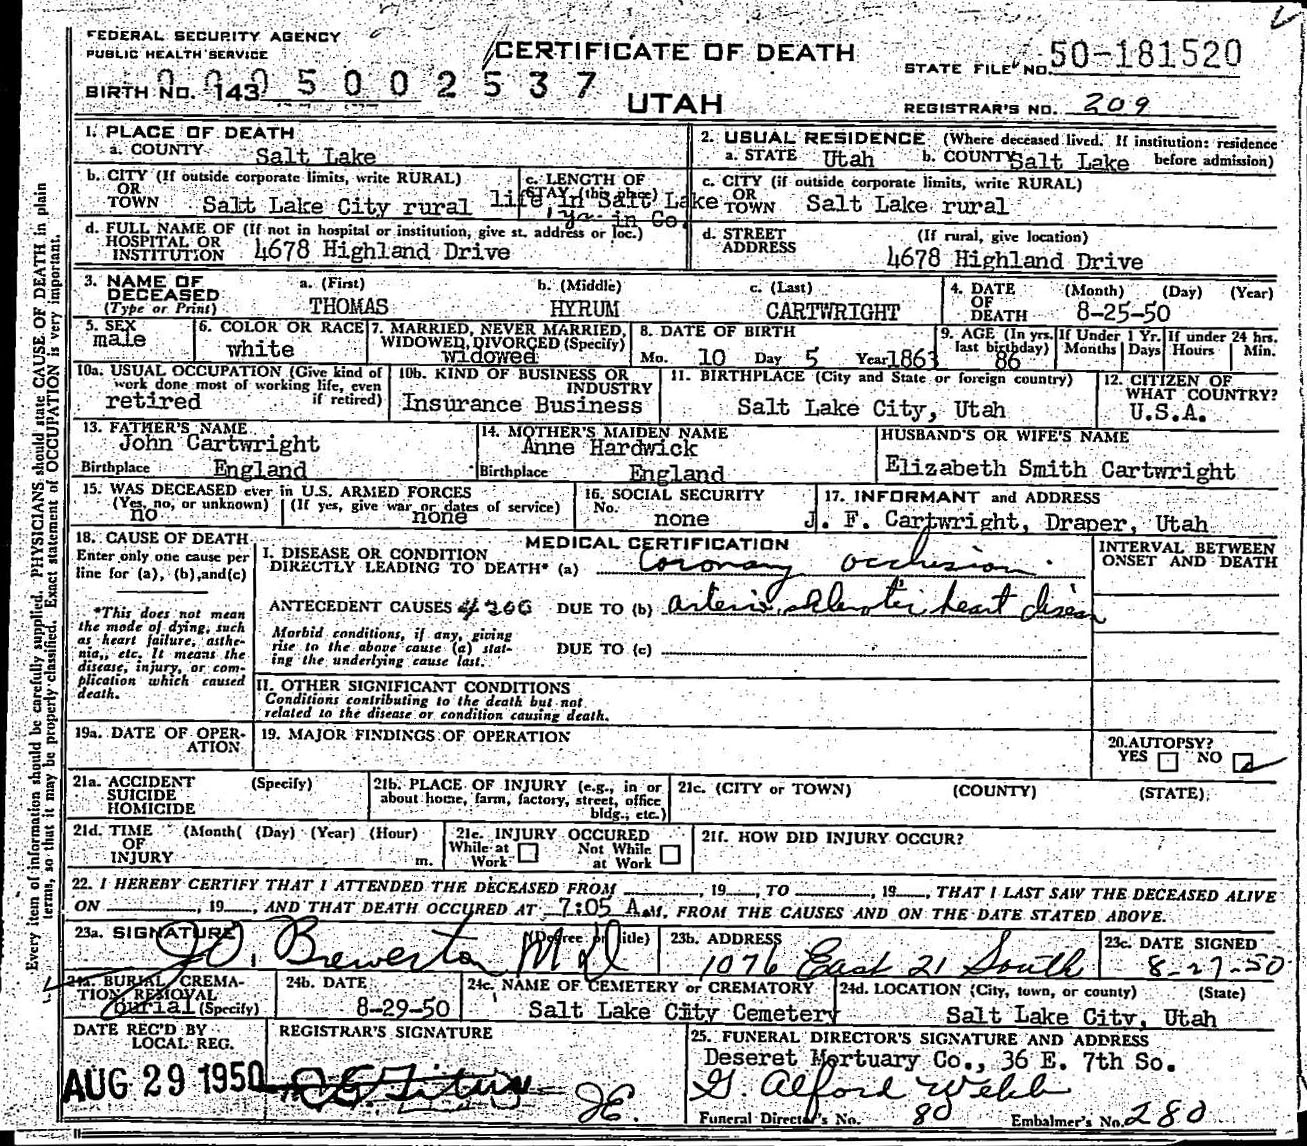 FEDERAL SECURITY AGENCY
PUBLIC HEALTH SERVICE
CERTIFICATE OF DEATH
STATE FILE NO. 50-181520
BIRTH NO. 143 0005002537
UTAH
REGISTRAR'S NO. 209
1. PLACE OF DEATH
a. COUNTY Salt Lake
2. USUAL RESIDENCE (Where deceased lived. If institution: residence before admission)
a. STATE Utah b. COUNTY Salt Lake
b. CITY (If outside corporate limits, write RURAL)
OR
TOWN Salt Lake City rural
c. LENGTH OF
STAY (this place)
life in Salt Lake
in Co.
c. CITY (if outside corporate limits, write RURAL)
OR
TOWN Salt Lake rural
d. FULL NAME OF (If not in hospital or institution, give st. address or loc.)
HOSPITAL OR
INSTITUTION 4678 Highland Drive
d. STREET
ADDRESS
(If rural, give location)
4678 Highland Drive
3. NAME OF
DECEASED
(Type or Print)
a. (First) b. (Middle) c. (Last)
THOMAS HYRUM CARTWRIGHT
4. DATE
OF
DEATH
(Month) (Day) (Year)
8-25-50
5. SEX
male
6. COLOR OR RACE
white
7. MARRIED, NEVER MARRIED,
WIDOWED, DIVORCED (Specify)
widowed
8. DATE OF BIRTH
Mo. 10 Day 5 Year 1863
9. AGE (In yrs.
last birthday)
86
If Under 1 Yr.
Months Days
If under 24 hrs.
Hours Min.
10a. USUAL OCCUPATION (Give kind of
work done most of working life, even
if retired)
retired
10b. KIND OF BUSINESS OR
INDUSTRY
Insurance Business
11. BIRTHPLACE (City and State or foreign country)
Salt Lake City, Utah
12. CITIZEN OF
WHAT COUNTRY?
U.S.A.
13. FATHER'S NAME
John Cartwright
Birthplace England
14. MOTHER'S MAIDEN NAME
Anne Hardwick
Birthplace England
HUSBAND'S OR WIFE'S NAME
Elizabeth Smith Cartwright
15. WAS DECEASED ever in U.S. ARMED FORCES
(Yes, no, or unknown) (If yes, give war or dates of service)
no none
16. SOCIAL SECURITY
No.
none
17. INFORMANT and ADDRESS
J. F. Cartwright, Draper, Utah
18. CAUSE OF DEATH
Enter only one cause per
line for (a), (b), and (c)
*This does not mean
the mode of dying, such
as heart failure, asthe-
nia,, etc. It means the
disease, injury, or com-
plication which caused
death.
MEDICAL CERTIFICATION
I. DISEASE OR CONDITION
DIRECTLY LEADING TO DEATH* (a) Coronary occlusion
ANTECEDENT CAUSES DUE TO (b) arterio sklerotic heart
Morbid conditions, if any, giving
rise to the above cause (a) stat-
ing the underlying cause last.
DUE TO (c)
II. OTHER SIGNIFICANT CONDITIONS
Conditions contributing to the death but not
related to the disease or condition causing death.
INTERVAL BETWEEN
ONSET AND DEATH
19a. DATE OF OPER-
ATION
19. MAJOR FINDINGS OF OPERATION
20. AUTOPSY?
YES NO
21a. ACCIDENT (Specify)
SUICIDE
HOMICIDE
21b. PLACE OF INJURY (e.g., in or
about home, farm, factory, street, office
bldg., etc.)
21c. (CITY OR TOWN) (COUNTY) (STATE)
21d. TIME (Month( (Day) (Year) (Hour)
OF
INJURY m.
21e. INJURY OCCURED
While at Not While
Work at Work
21f. HOW DID INJURY OCCUR?
22. I HEREBY CERTIFY THAT I ATTENDED THE DECEASED FROM , 19 , TO , 19 , THAT I LAST SAW THE DECEASED ALIVE
ON , 19 , AND THAT DEATH OCCURED AT 7:05 A.M, FROM THE CAUSES AND ON THE DATE STATED ABOVE.
23a. SIGNATURE (Degree or title)
J. O. Brewerton M D
23b. ADDRESS
1076 East 21 South
23c. DATE SIGNED
8-27-50
24a. BURIAL, CREMA-
TION REMOVAL
(Specify)
burial
24b. DATE
8-29-50
24c. NAME OF CEMETERY OR CREMATORY
Salt Lake City Cemetery
24d. LOCATION (City, town, or county) (State)
Salt Lake City, Utah
DATE REC'D BY
LOCAL REG.
AUG 29 1950
REGISTRAR'S SIGNATURE
25. FUNERAL DIRECTOR'S SIGNATURE AND ADDRESS
Deseret Mortuary Co., 36 E. 7th So.
G. Alford Webb
Funeral Director's No. 80 Embalmer's No. 280
Every item of information should be carefully supplied. PHYSICIANS should state CAUSE OF DEATH in plain
terms, so that it may be properly classified. Exact statement of OCCUPATION is very important.